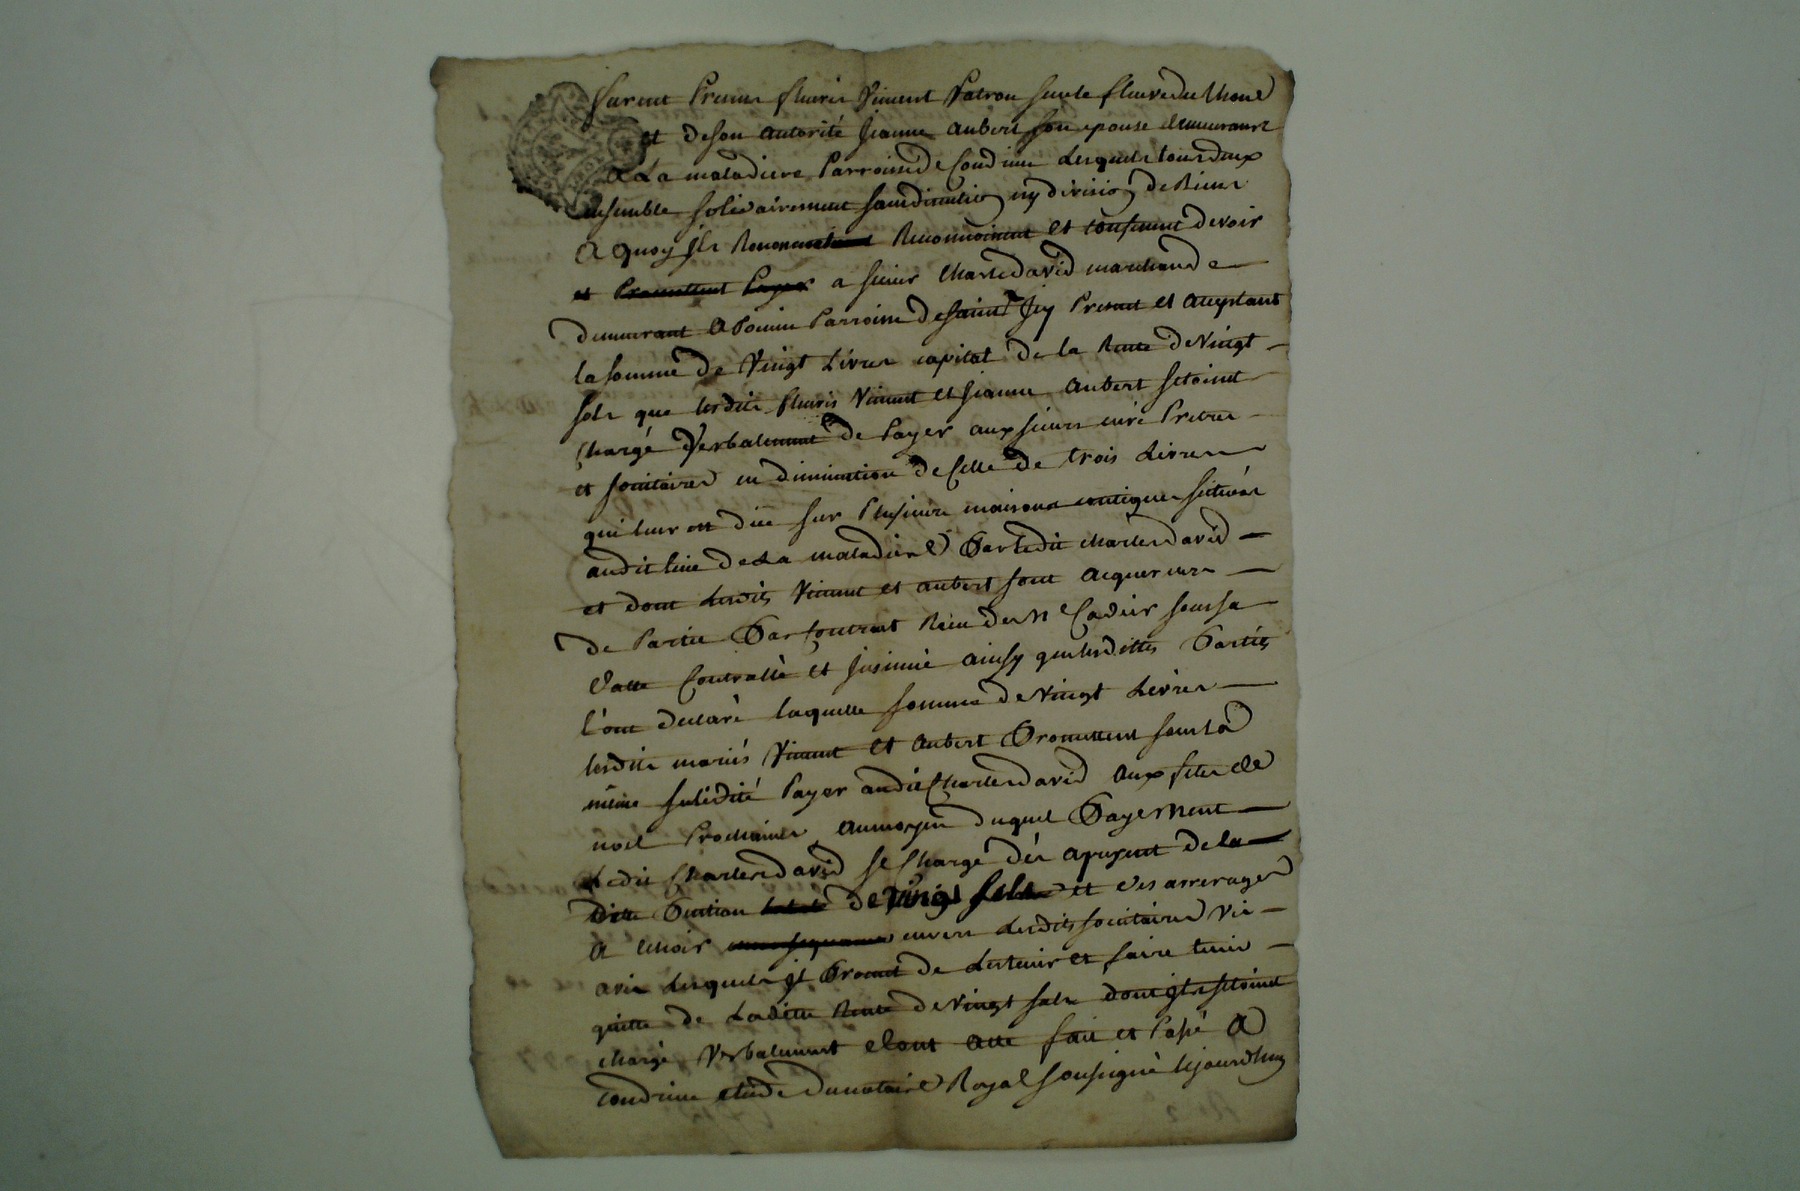 furent Presens fleuris Vincent Patron sur le fleuve du Rhone
et de son autorité Jeanne aubert son epouse demeurant
a La maladiere Parroisse de Condrieu Lesquels tous deux
ensemble solidairement sans division ny
a quoy ils Renoncent Reconnoissent et confessent devoir
et Promettent Payer a sieur Charle david marchand
demeurant a Parroisse de saint Present et acceptant
la somme de Vingt Livres capital de la Rente de Vingt
sols que lesdits fleuris Vincent et Jeanne aubert setoient
Chargé Verbalement de Payer aux sieurs curé Pretres
et societaires en diminution de celle de trois Livres
qui leur est düe sur Plusieurs maisons contigues situées
audit lieu de La maladiere Par ledit charles david
et dont lesdits Vincent et aubert sont acquereurs
de Partie Par Contrat Recu de Me Cadier sous sa
datte Controllé et Insinué ainsy que lesdittes Parties
l'ont declaré laquelle somme de Vingt Livres
lesdits mariés Vincent et aubert Promettent sous la
même solidité Payer audit Charles david aux fetes de
noel Prochaines aumoyen duquel Payement
Ledit Charles david se Charge dés apresent de la
ditte Pention de Vingt sols et des arrerages
a Echoir envers lesdits societaires
desquels il Promet de les tenir et faire tenir
quitte de Laditte Rente de Vingt sols dont ils setoient
chargé Verbalement dont acte fait et Passé a
Condrieu etude du notaire Royal soussigné lejourdhuy